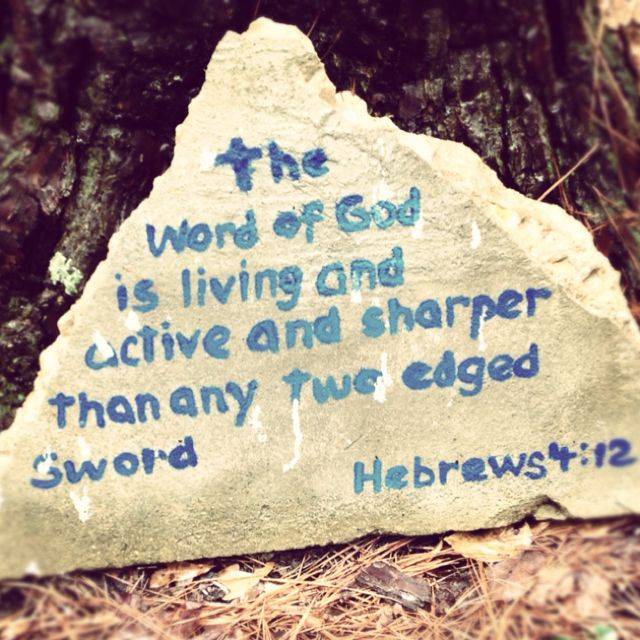 the
word of God
is living and
active and sharper
than any two edged
sword
Hebrews 4:12